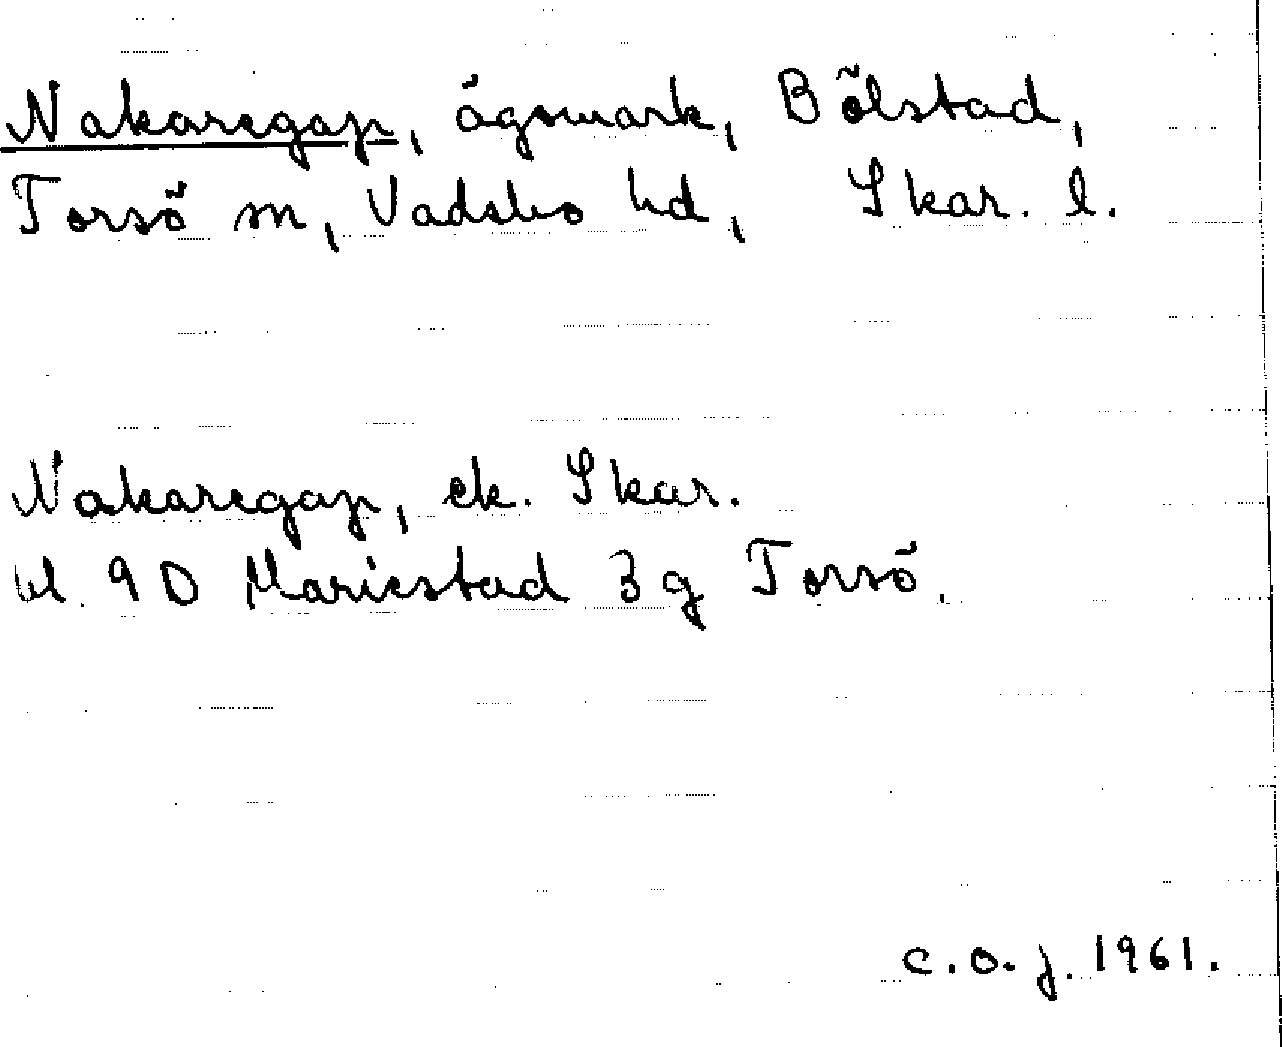 Nakaregap, ägomark, Bölstad,
Torsö sn, Vadsbo hd, Skar. l.
Nakaregap, ek. Skar.
bl. 9 D Mariestad 3 g Torsö.
C.O.J. 1961.